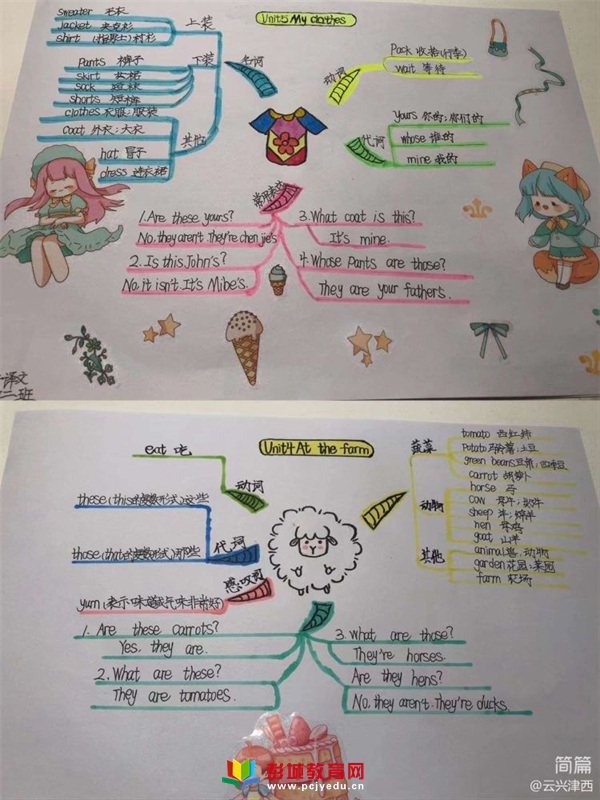 Unit5 My clothes
sweater 毛衣
jacket 夹克衫
shirt (指男士)衬衫
上装
pants 裤子
skirt 女裙
sock 短袜
shorts 短裤
下装
clothes 衣服;服装
coat 外衣;大衣
hat 帽子
dress 连衣裙
其他
名词
动词
Pack 收拾(行李)
wait 等待
代词
yours 你的;你们的
whose 谁的
mine 我的
1.Are these yours?
No, they aren't. They're chen jie's
2. Is this John's?
No, it isn't. It's Mibe's.
3.What coat is this?
It's mine.
4. Whose pants are those?
They are your fathers.
译文
二班
Unit4 At the farm
eat 吃
动词
these (this的复数形式)这些
those (that的复数形式)那些
代词
感叹词
yum (表示味道或气味非常好)
蔬菜
tomato 西红柿
Potato 马铃薯;土豆
green beans 豆角;四季豆
carrot 胡萝卜
动物
horse 马
cow 母牛;奶牛
sheep 羊;绵羊
hen 母鸡
goat 山羊
其他
animal 兽;动物
garden 花园;菜园
farm 农场
1. Are these carrots?
Yes, they are.
2. What are these?
They are tomatoes.
3. What are those?
They're horses.
Are they hens?
No, they aren't. They're ducks.
彭城教育网
www.pcjyedu.cn
简篇
@云兴津西